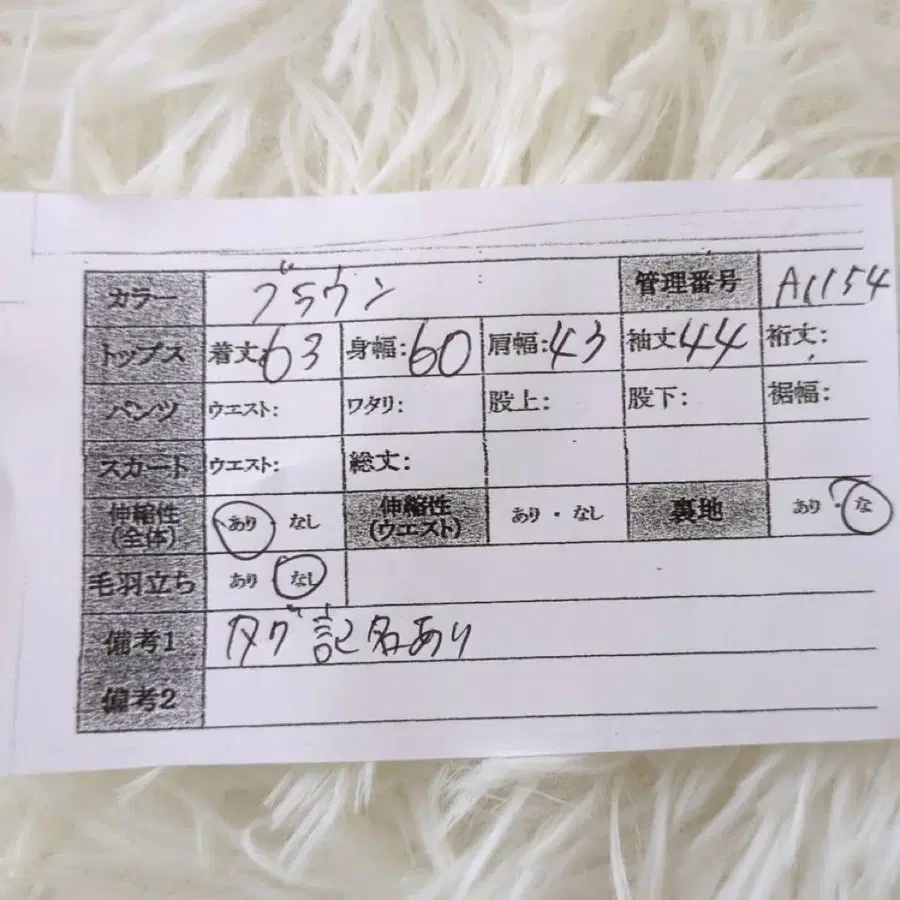 カラー ブラウン 管理番号 A1154
トップス 着丈:63 身幅:60 肩幅:43 袖丈44 裄丈:
パンツ ウエスト: ワタリ: 股上: 股下: 裾幅:
スカート ウエスト: 総丈:
伸縮性(全体) あり・なし 伸縮性(ウエスト) あり・なし 裏地 あり・な
毛羽立ち あり なし
備考1 タグ記名あり
備考2